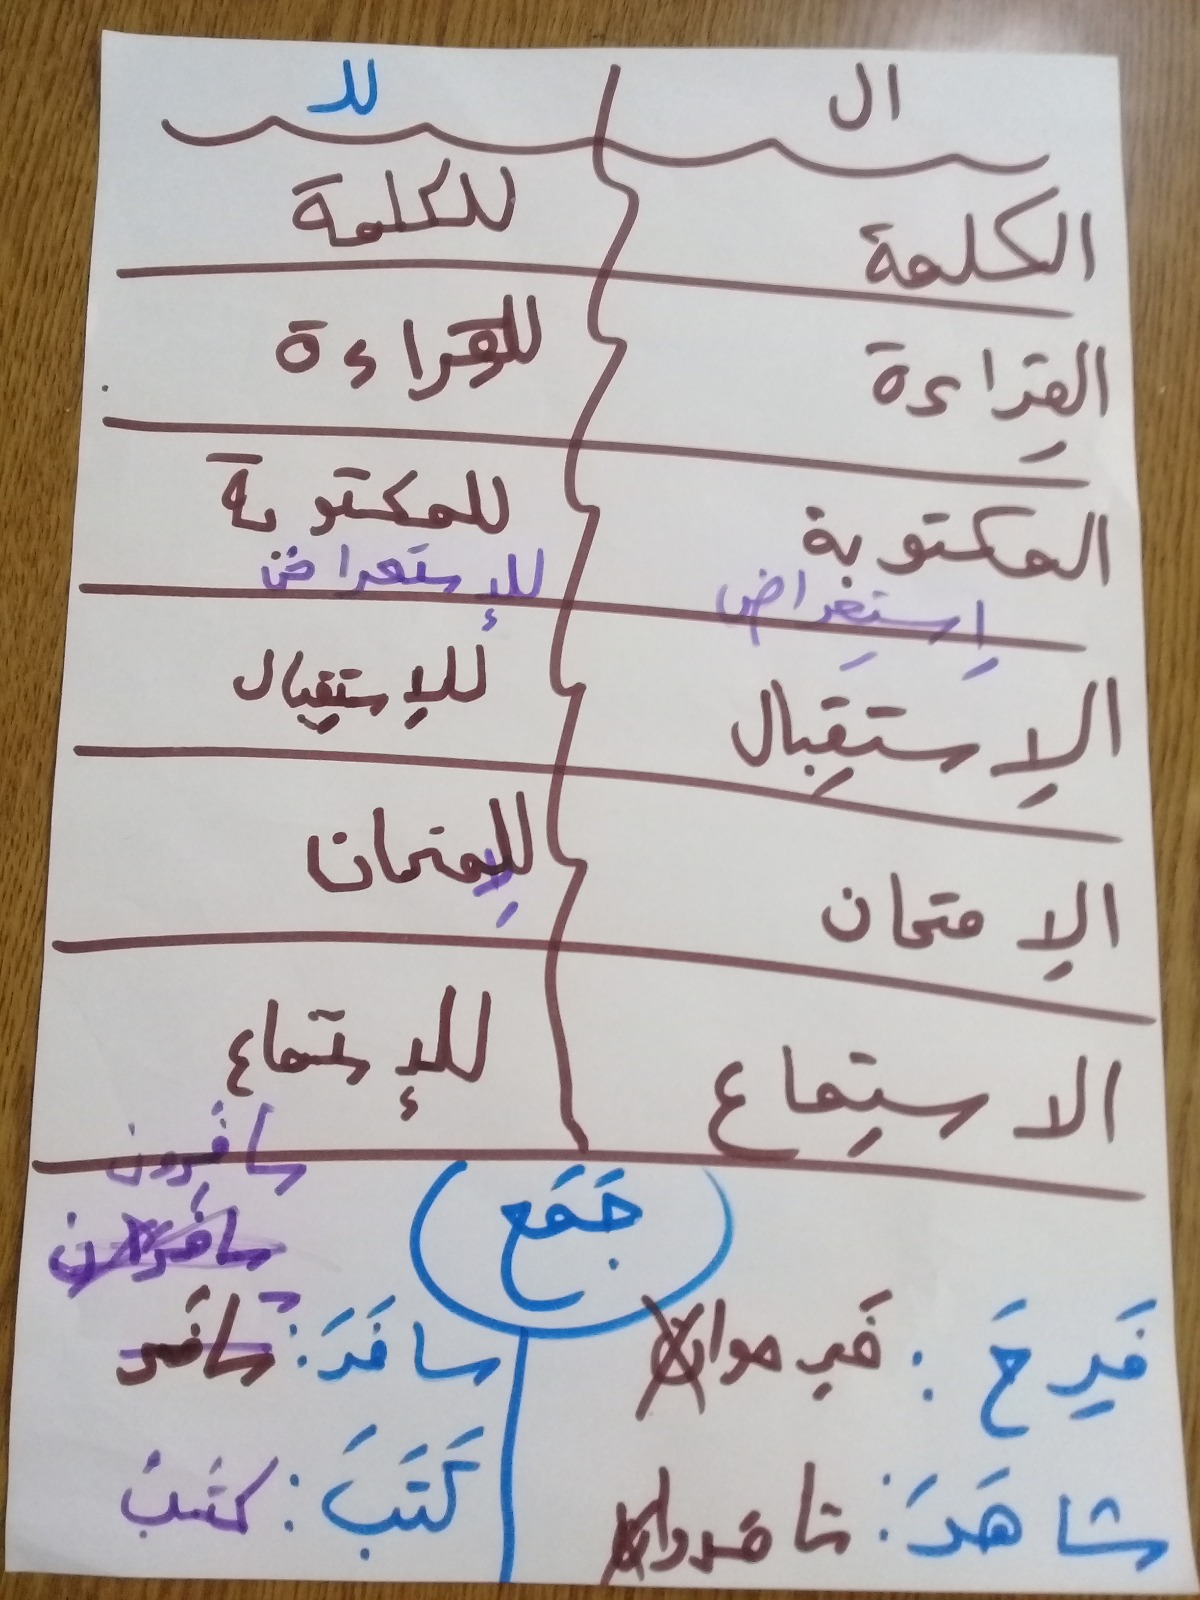 ال
للـ
الكلمة
للكلمة
القِراءة
للقراءة
المكتوبة
للمكتوبة
اِستِعراض
للإستَعراض
الاِستقِبال
للاِستقِبال
الاِمتحان
للاِمتحان
الاستِماع
للإستماع
سافَرون
جَمَع
فَرِحَ :
سافَرَ : سافَر
شاهَدَ :
كَتَبَ : كتَبَ